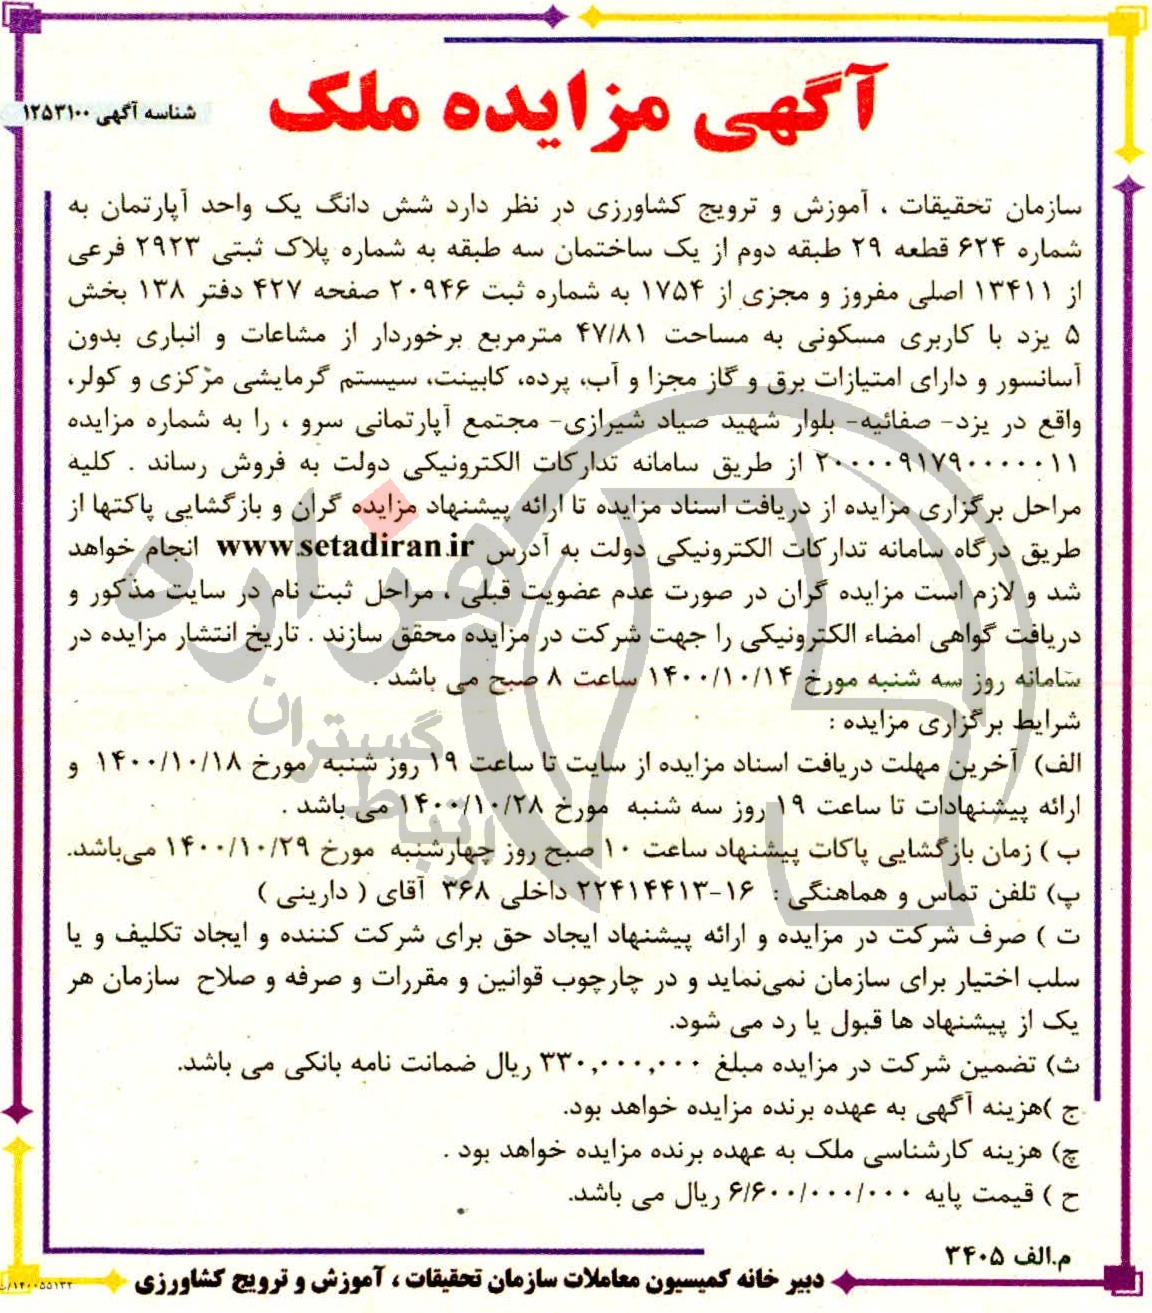 آگهی مزایده ملک
شناسه آگهی ۱۲۵۳۱۰۰
سازمان تحقیقات ، آموزش و ترویج کشاورزی در نظر دارد شش دانگ یک واحد آپارتمان به
شماره ۶۲۴ قطعه ۲۹ طبقه دوم از یک ساختمان سه طبقه به شماره پلاک ثبتی ۲۹۲۳ فرعی
از ۱۳۴۱۱ اصلی مفروز و مجزی از ۱۷۵۴ به شماره ثبت ۲۰۹۴۶ صفحه ۴۲۷ دفتر ۱۳۸ بخش
۵ یزد با کاربری مسکونی به مساحت ۴۷/۸۱ مترمربع برخوردار از مشاعات و انباری بدون
آسانسور و دارای امتیازات برق و گاز مجزا و آب، پرده، کابینت، سیستم گرمایشی مرکزی و کولر،
واقع در یزد- صفائیه- بلوار شهید صیاد شیرازی- مجتمع آپارتمانی سرو ، را به شماره مزایده
۲۰۰۰۰۹۱۷۹۰۰۰۰۰۱۱ از طریق سامانه تدارکات الکترونیکی دولت به فروش رساند . کلیه
مراحل برگزاری مزایده از دریافت اسناد مزایده تا ارائه پیشنهاد مزایده گران و بازگشایی پاکتها از
طریق درگاه سامانه تدارکات الکترونیکی دولت به آدرس www.setadiran.ir انجام خواهد
شد و لازم است مزایده گران در صورت عدم عضویت قبلی ، مراحل ثبت نام در سایت مذکور و
دریافت گواهی امضاء الکترونیکی را جهت شرکت در مزایده محقق سازند . تاریخ انتشار مزایده در
سامانه روز سه شنبه مورخ ۱۴۰۰/۱۰/۱۴ ساعت ۸ صبح می باشد .
شرایط برگزاری مزایده :
الف) آخرین مهلت دریافت اسناد مزایده از سایت تا ساعت ۱۹ روز شنبه مورخ ۱۴۰۰/۱۰/۱۸ و
ارائه پیشنهادات تا ساعت ۱۹ روز سه شنبه مورخ ۱۴۰۰/۱۰/۲۸ می باشد .
ب ) زمان بازگشایی پاکات پیشنهاد ساعت ۱۰ صبح روز چهارشنبه مورخ ۱۴۰۰/۱۰/۲۹ می‌باشد.
پ) تلفن تماس و هماهنگی : ۱۶-۲۲۴۱۴۴۱۳ داخلی ۳۶۸ آقای ( دارینی )
ت ) صرف شرکت در مزایده و ارائه پیشنهاد ایجاد حق برای شرکت کننده و ایجاد تکلیف و یا
سلب اختیار برای سازمان نمی‌نماید و در چارچوب قوانین و مقررات و صرفه و صلاح سازمان هر
یک از پیشنهاد ها قبول یا رد می شود.
ث) تضمین شرکت در مزایده مبلغ ۳۳۰,۰۰۰,۰۰۰ ریال ضمانت نامه بانکی می باشد.
ج )هزینه آگهی به عهده برنده مزایده خواهد بود.
چ) هزینه کارشناسی ملک به عهده برنده مزایده خواهد بود .
ح ) قیمت پایه ۶/۶۰۰/۰۰۰/۰۰۰ ریال می باشد.
م.الف ۳۴۰۵
دبیر خانه کمیسیون معاملات سازمان تحقیقات ، آموزش و ترویج کشاورزی
هزاره
گستران
ارتباط